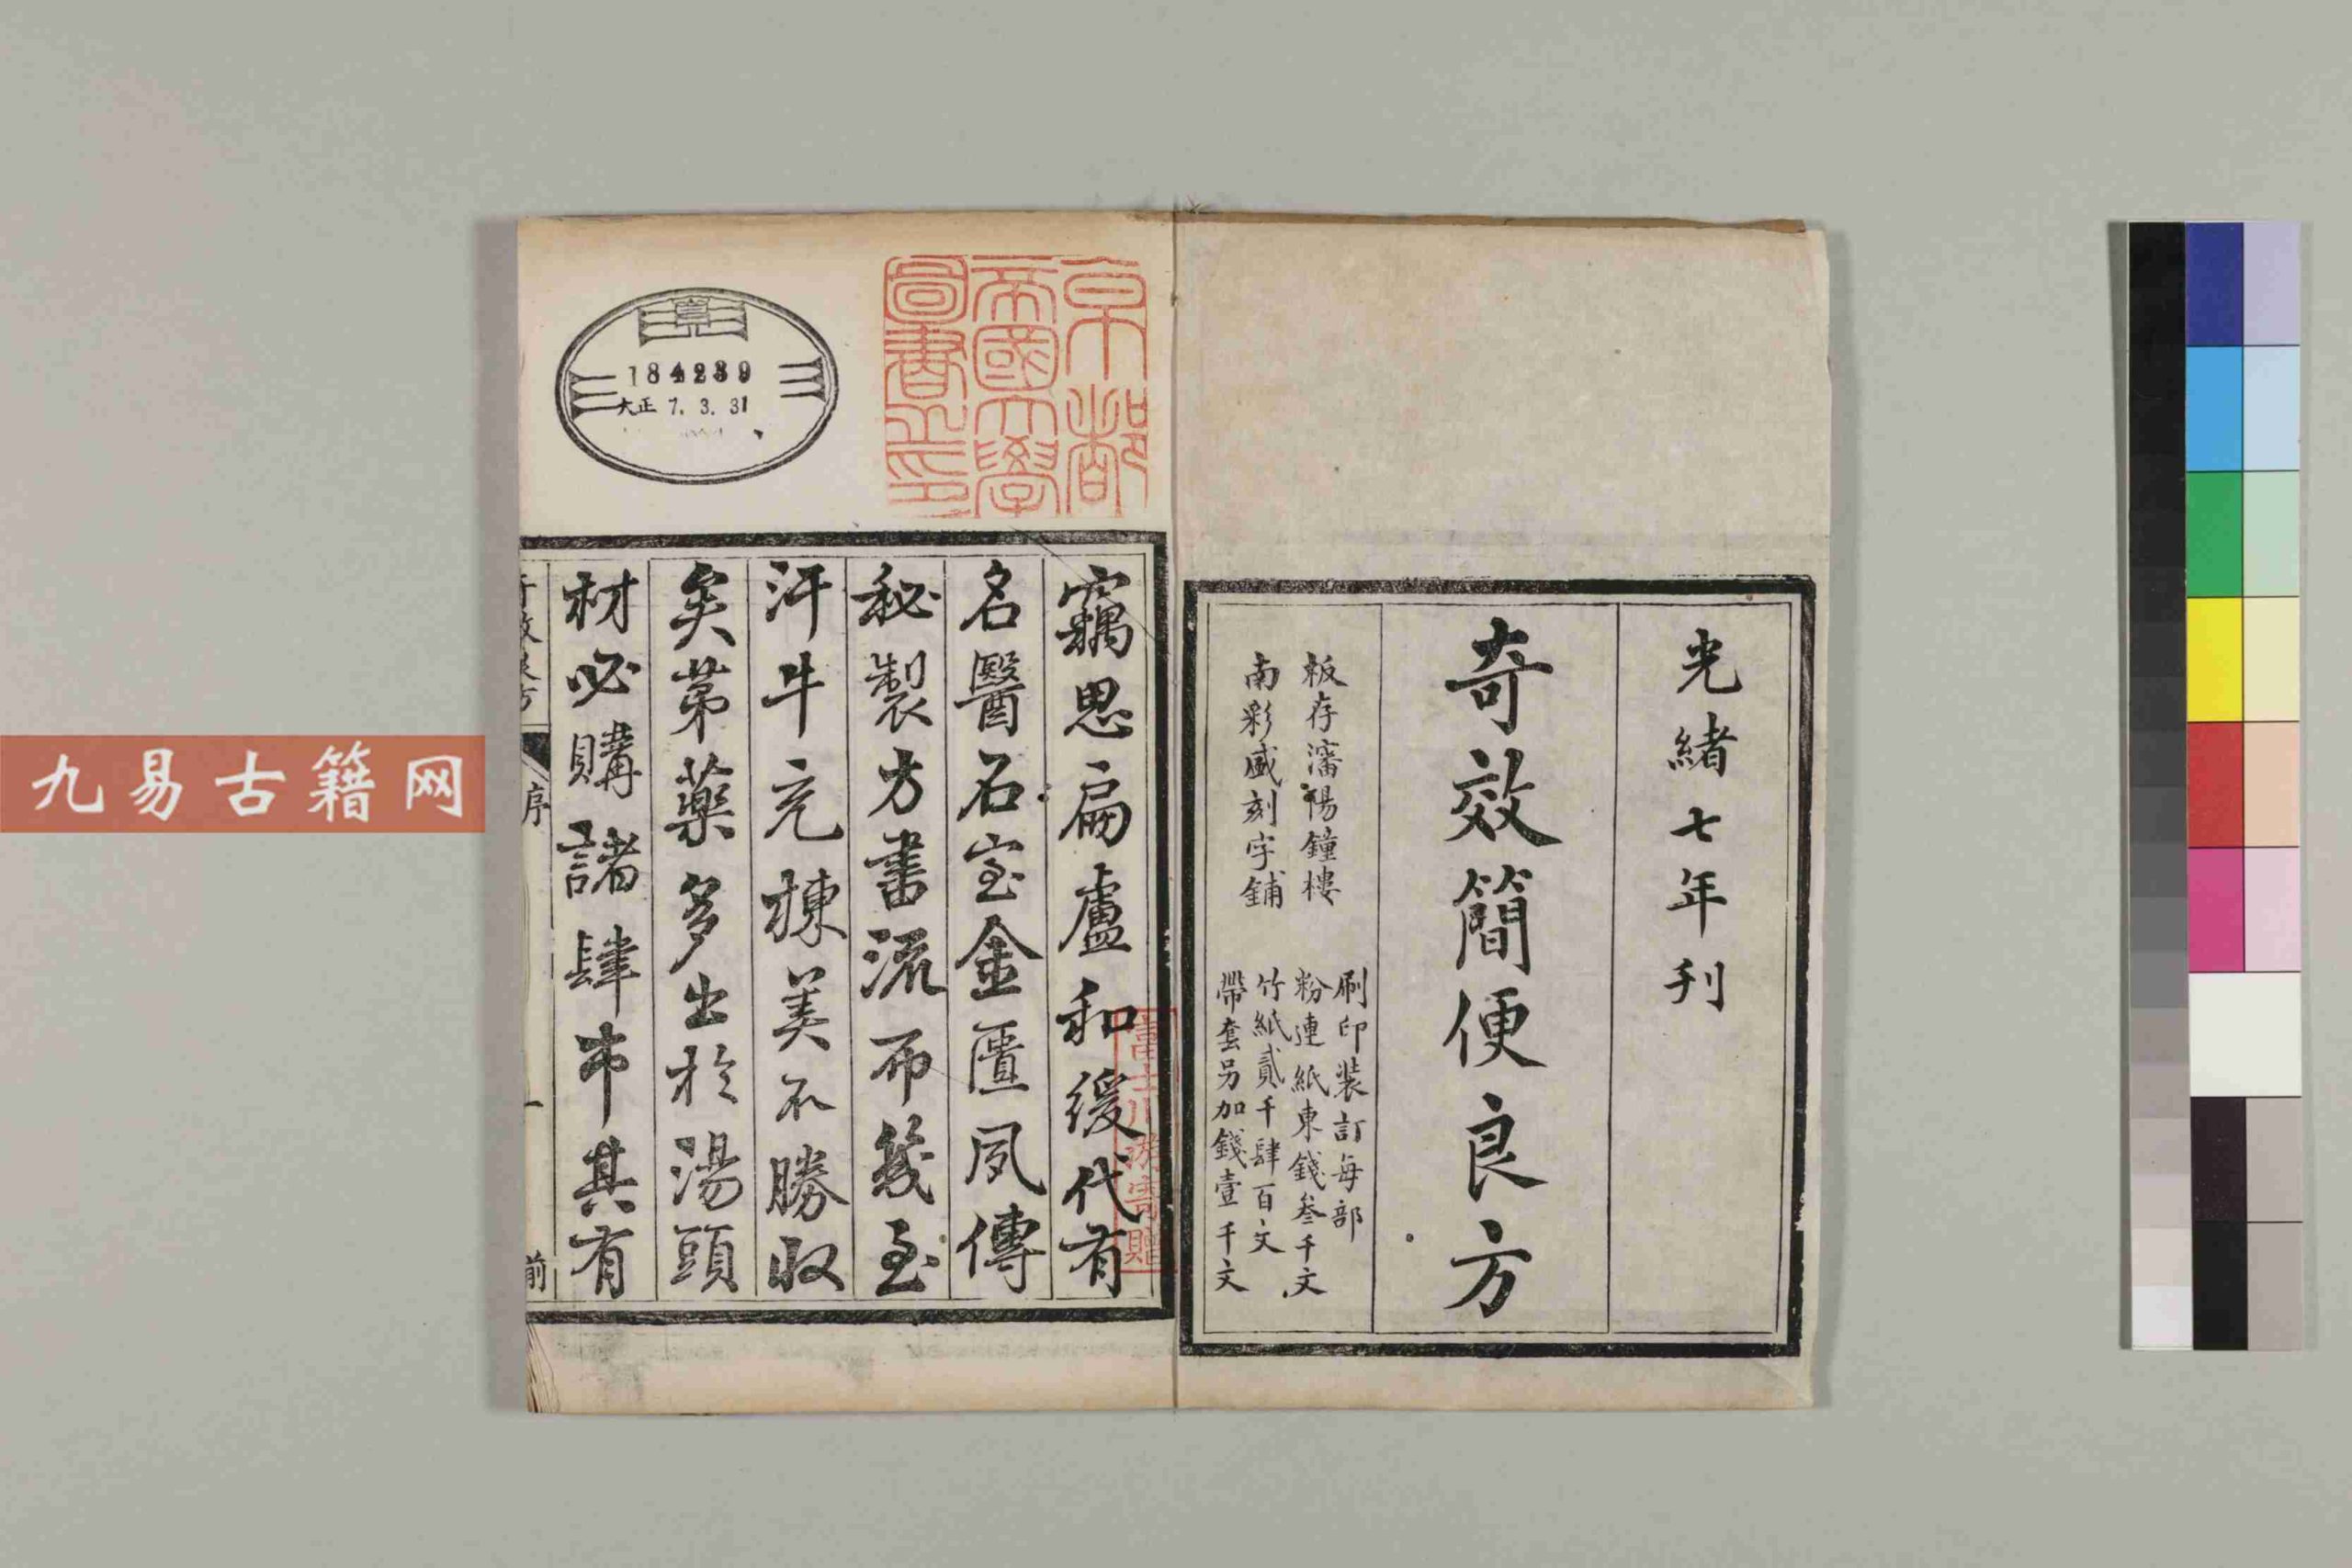 光緒七年刊
奇效簡便良方
板存瀋陽鐘樓
南彩盛刻字鋪
刷印裝訂每部
粉連紙東錢叁千文
竹紙貳千肆百文
帶套另加錢壹千文
京都
帝國大學
圖書之印
184239
大正 7. 3. 31
竊思扁盧和緩代有
名醫石室金匱夙傳
秘製方書流布幾至
汗牛充棟美不勝收
矣苐藥多出於湯頭
材必購諸肆市其有
序
一
前
富士川游寄贈
九易古籍网